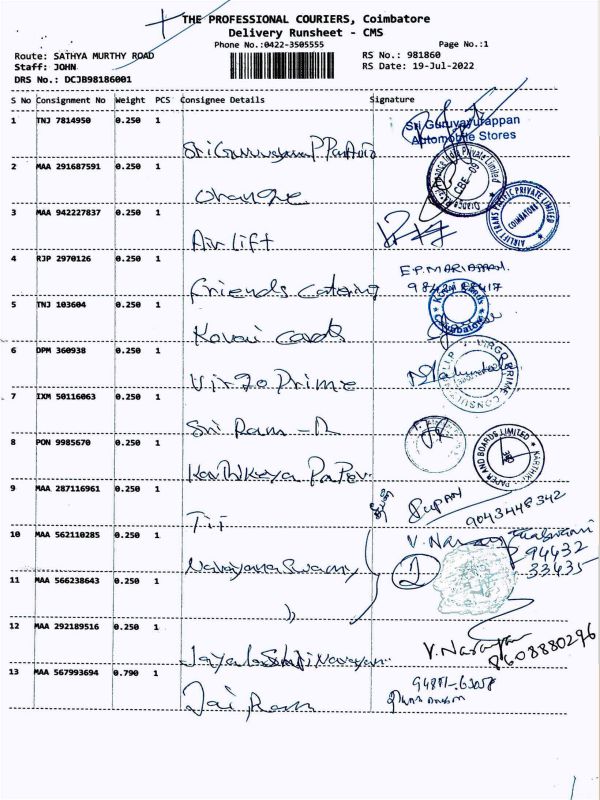 THE PROFESSIONAL COURIERS, Coimbatore
Delivery Runsheet - CMS
Phone No.:0422-3505555
Page No.:1
Route: SATHYA MURTHY ROAD
RS No.: 981860
Staff: JOHN
RS Date: 19-Jul-2022
DRS No.: DCJB98186001
S No Consignment No Weight PCS Consignee Details Signature
1 TNJ 7814950 0.250 1
Sri Guruvayurappan
Automobile Stores
2 MAA 291687591 0.250 1
Orange
3 MAA 942227837 0.250 1
Airlift
AIRLIFT TRANS PACIFIC PRIVATE LIMITED
COIMBATORE
4 RJP 2970126 0.250 1
Friends Catering
E.P.MARIAPPAN.
5 TNJ 103604 0.250 1
Kovai Cards
Kovai Cards
Coimbatore
6 DPM 360938 0.250 1
Virgo Prime
VIRGO PRIME CONSUL
7 IXM 50116063 0.250 1
Sri Ram
8 PON 9985670 0.250 1
PAPER AND BOARDS LIMITED
9 MAA 287116961 0.250 1
9043448342
10 MAA 562110285 0.250 1
Narayana Swamy
94432
33435
11 MAA 566238643 0.250 1
"
12 MAA 292189516 0.250 1
V.Narayan
8608880296
13 MAA 567993694 0.790 1
Jai Ram